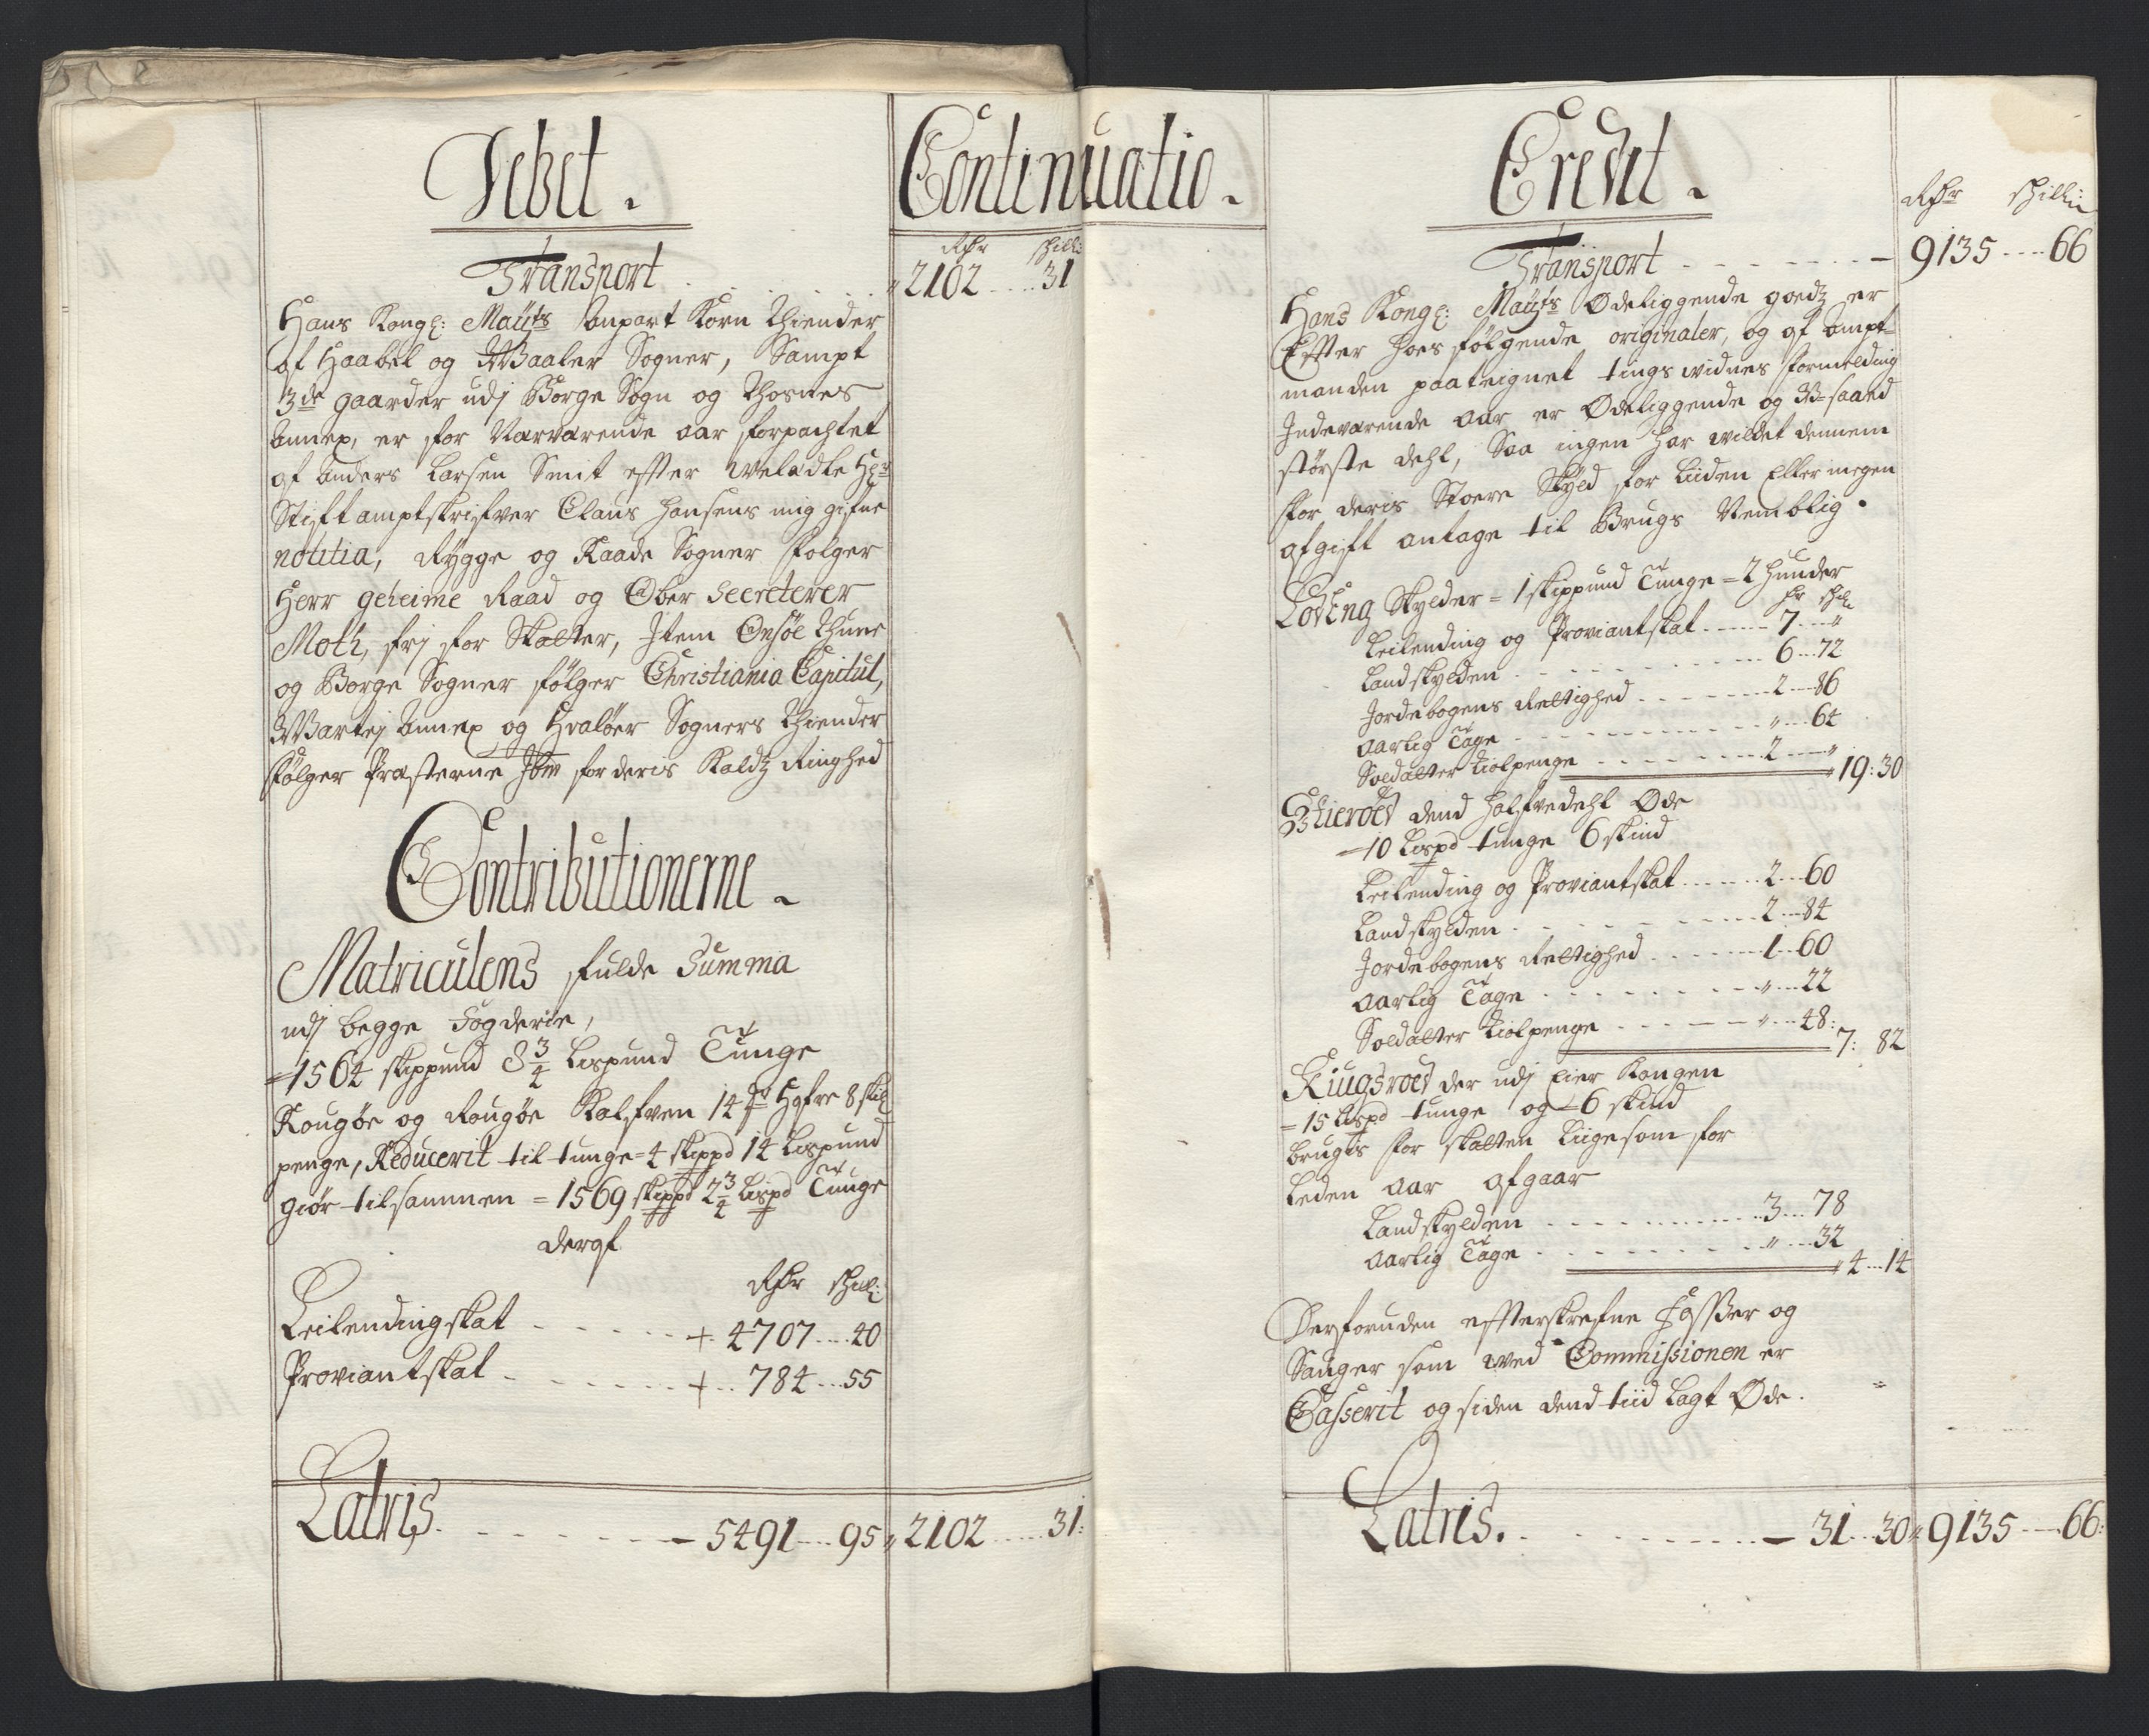 Debet.
Continuatio.
Rdr schill:
Transport . . . . . . . 2102 .... 31
Hans Kongl: Maÿts anpart Korn Thiender
af Haabel og Waaler Sogner, Sampt
3de gaarder udj Borge Sogn og Thorsnes
annex, er for Nærværende aar forpachtet
af Anders Larsen Smit effter Welædle Hr
Stifft amptskrifver Claus Hansens mig gifne
notitia, Rygge og Raade Sogner følger
Herr geheime Raad og Ober Secreterer
Moth, frj for Skatter, Item Onsøe Thune
og Borge Sogner følger Christiania Capitul,
Wartej Annex og Hvaløer Sogners Thiender
følger Præsterne for deris Kaldtz Ringhed
Contributionerne.
Matriculens fulde Summa
udj begge Fogderie,
= 1564 skippund 8 3/4 Lispund Tunge
Rougøe og Rougøe Kalfven 14 Hgfre 8 skil
penge, Reducerit til tunge = 4 skippd 14 Lispund
giør tilsammen = 1569 skippd 2 3/4 Lispd Tunge
deraf
Rdr schill:
Leilendingskat . . . . . + 4707 .... 40
Proviantskat . . . . . . + .. 784 ... 55
Latris. . . . . . . . - 5491 ... 95 " 2102 ..... 31:
Credit.
Rdr schilli
Transport . . . . . . . - 9135 .... 66
Hans Kongl: Maÿts Ødeliggende godtz er
Effter hoes følgende originaler, og af Ampt=
manden paateignet tings widnes formelding
Indeværende aar er Ødeliggende og U=saaed
største dehl, Saa ingen har wildet dennem
for deris Stoere Skyld for Liiden Eller ingen
afgift antage til Brugs Nemblig.
Lødeng Skylder = 1 skippund Tunge = 2 Hunder
dr schl
Leilending og Proviantskat ...... 7 ... "
Landskylden . . . . . . . 6 ... 72
Jordebogens Rettighed . . . . . . . 2 ... 86
Aarlig Tage . . . . . . . " ... 64
Soldatter Kiolpenge . . . . . . . 2 ... " " 19: 30
Bieroed dend halfvedehl Øde
= 10 Lispd tunge 6 skind
Leilending og Proviantskat ....... 2 ... 60
Landskylden . . . . . . . 2 ... 84
Jordebogens Rettighed . . . . . . . 1 ... 60
Aarlig Tage . . . . . . . " ... 22
Soldatter Kiolpenge . . . . . . . " ... 48: 7: 82
Kiugsroed der udj Eier Kongen
= 15 Lispd tunge og = 6 skind
brugis for skatten Liigesom for
Leden aar afgaar
Landskylden . . . . . . . 3 ... 78
Aarlig Tage . . . . . . . " ... 32
" 4 ... 14
Derforuden effterskrefne Fosser og
Sauger som wed Commissionen er
Casserit og siden dend tiid lagt Øde.
Latris. . . . . . . . - 31 .. 30 " 9135 .... 66: